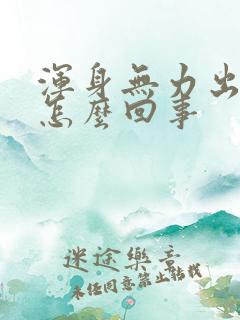 渾身無力出
怎麼回事
迷途樂章
未經同意禁止轉載